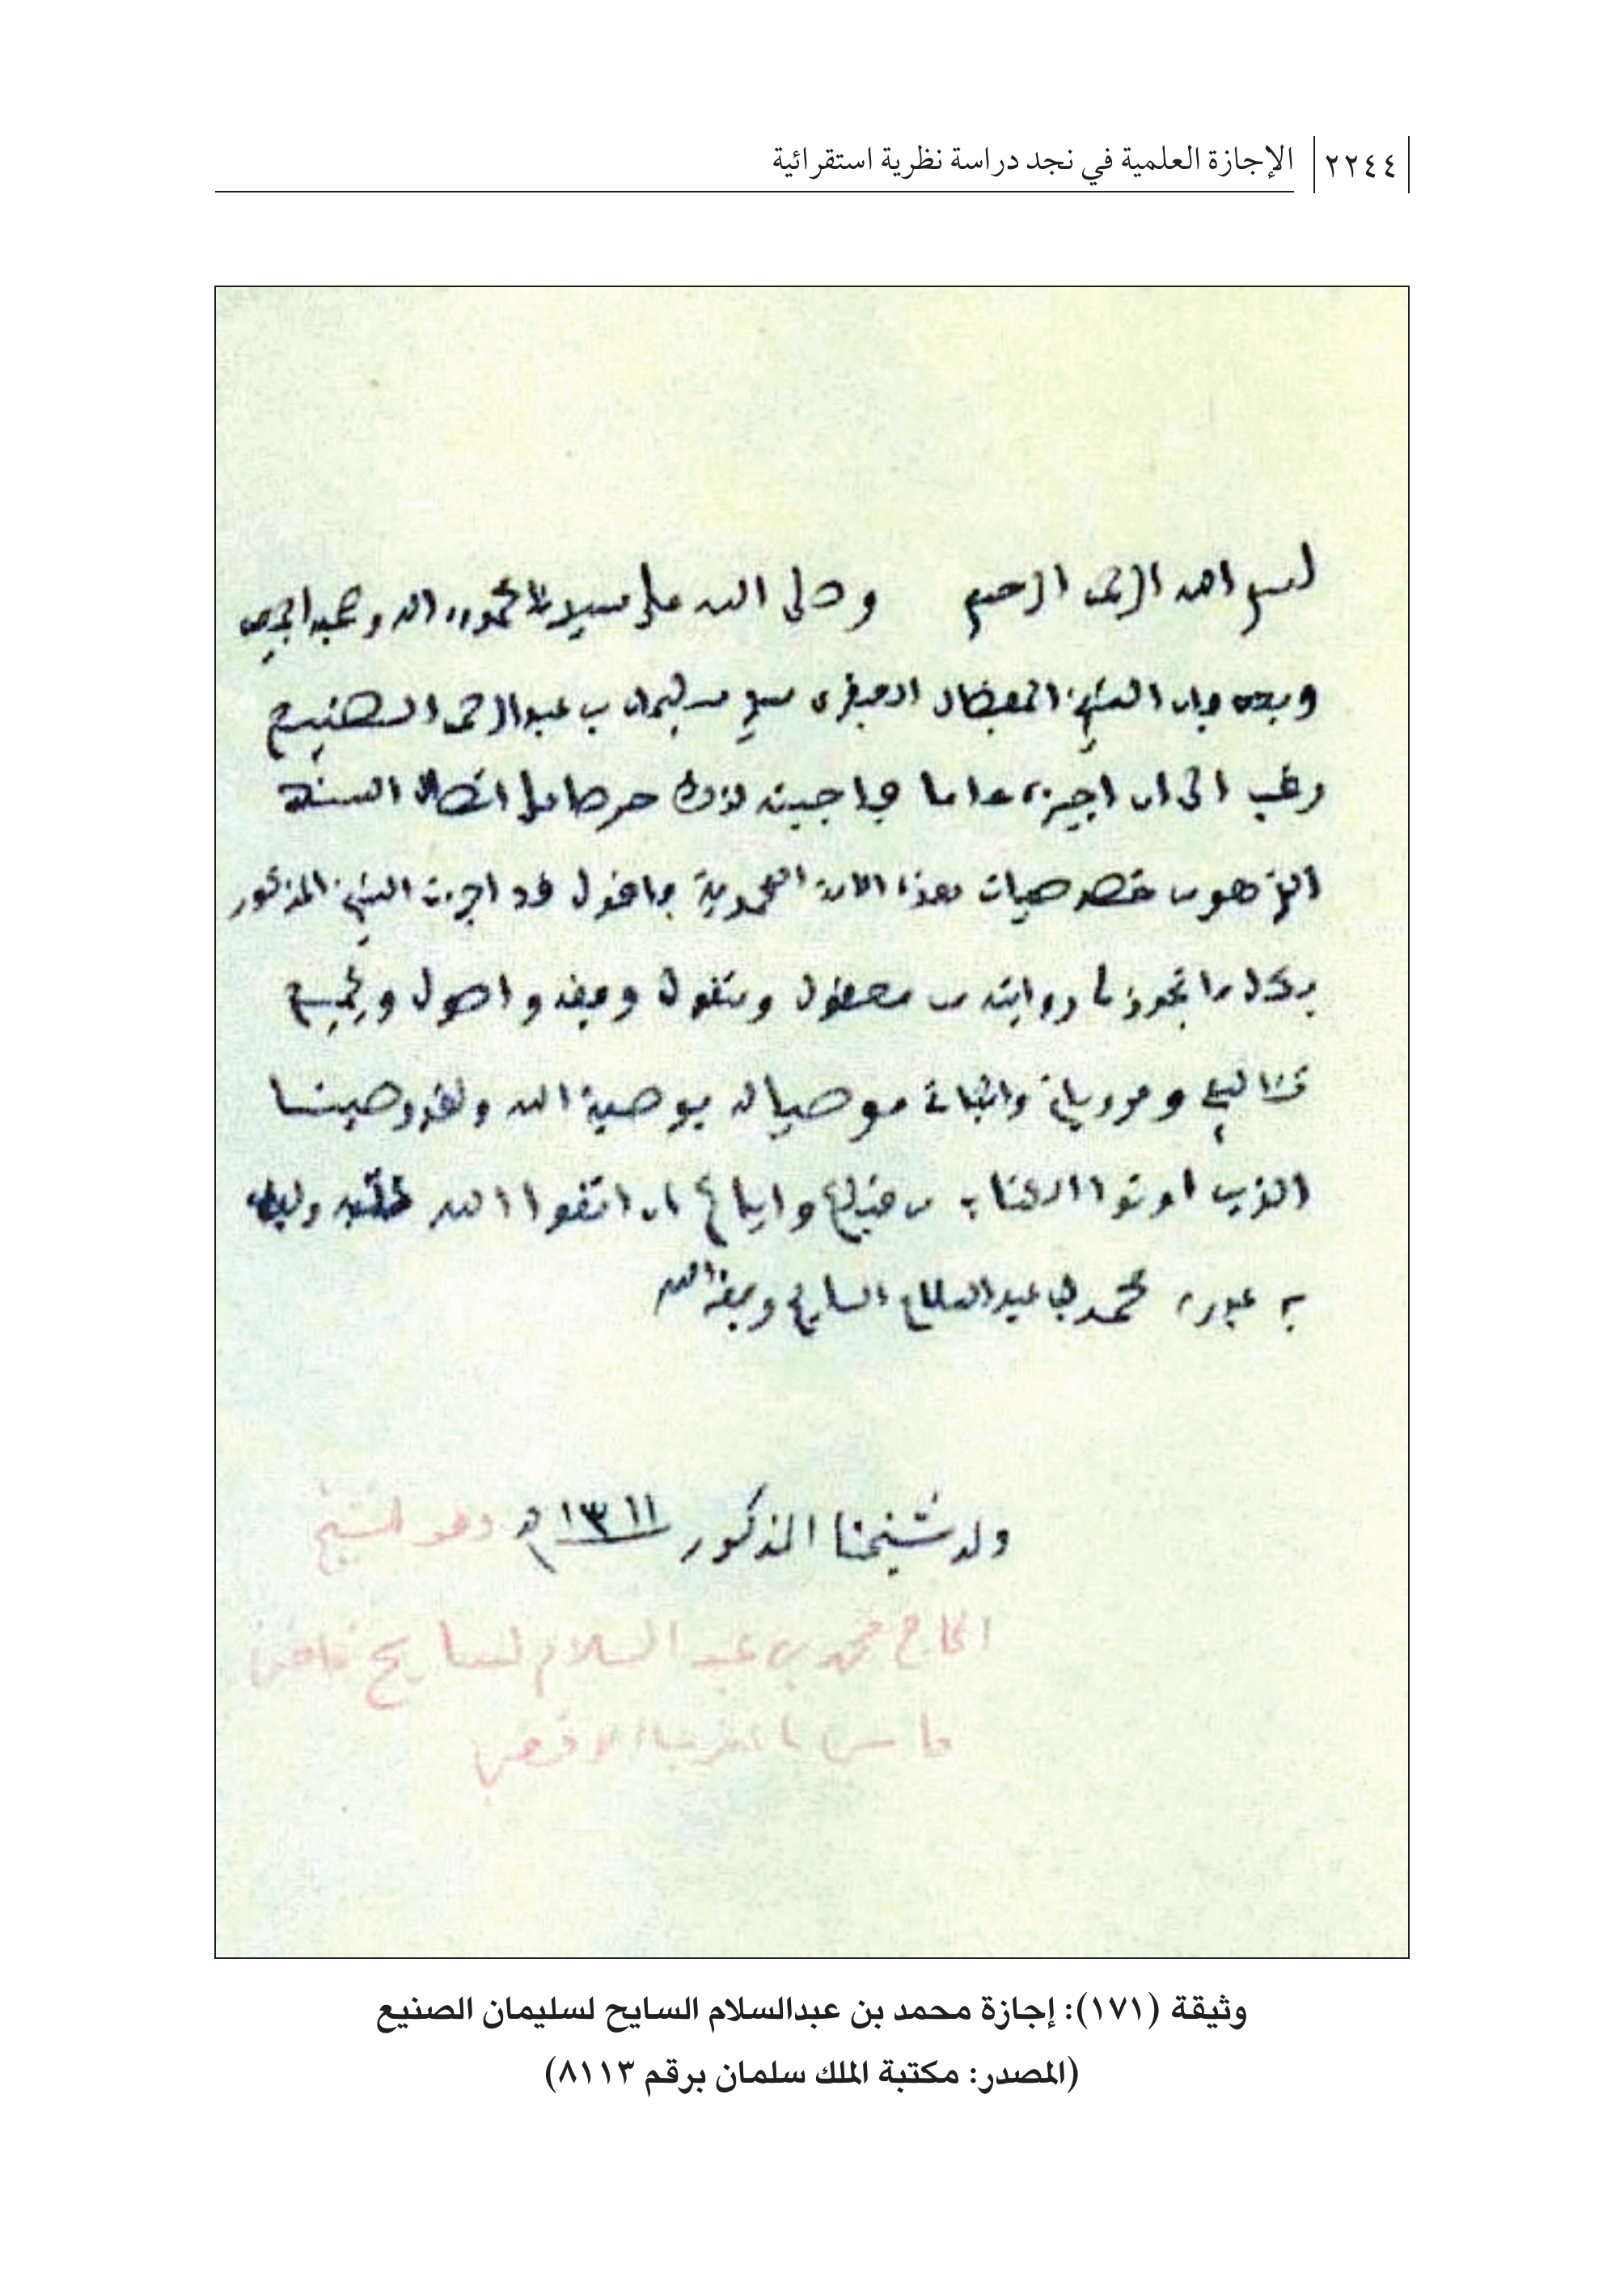 ٢٢٤٤ الإجازة العلمية في نجد دراسة نظرية استقرائية
بسم الله الرحمن الرحيم وصلى الله على سيدنا محمد وآله وصحبه أجمعين
وبعد فإن الشيخ المفضال سليمان بن عبد الرحمن الصنيع
رغب الى ان اجيزه عاما فاجبته لذلك حرصا على اتصال السند
الذي هو من خصوصيات هذه الامة المحمدية فاقول قد اجزت الشيخ المذكور
بكل ما تجوز لي روايته من معقول ومنقول وفقه واصول وبجميع
تآليفي ومروياتي موصيا له بوصية الله ولقد وصينا
الذين اوتوا الكتاب من قبلكم واياكم ان اتقوا الله
عبده محمد بن عبد السلام السايح وفقه الله
ولد شيخنا المذكور ١٣١١ هـ وهو الشيخ
الحاج محمد بن عبد السلام السايح قاضي
فاس بالمغرب الاقصى
وثيقة (١٧١): إجازة محمد بن عبدالسلام السايح لسليمان الصنيع
(المصدر: مكتبة الملك سلمان برقم ٨١١٣)